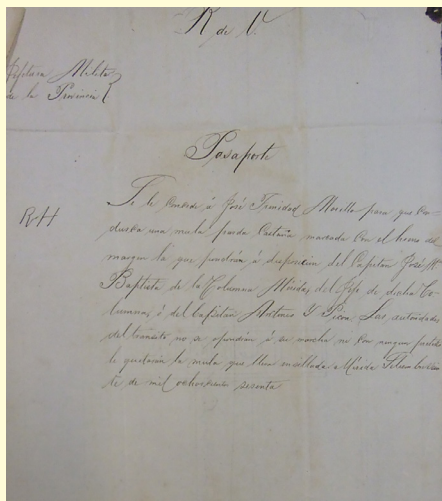 R de V.
Jefatura Milita
de la Provincia
Pasaporte
RH
Se le Concede á José Trinidad Morillo para que Con
dusca una mula parda Castaña marcada con el hierro del
margen la que pondrá á disposicion del Capitan José M.
Baptista de la Columna Mérida, del Jefe de dicha Co
lumna ó del Capitan Antonio Y Picon Las autoridades
del transito no se opondran á su marcha ni con ningun
le quitarán la mula que lleva ensillada Mérida
te de mil ochocientos sesenta